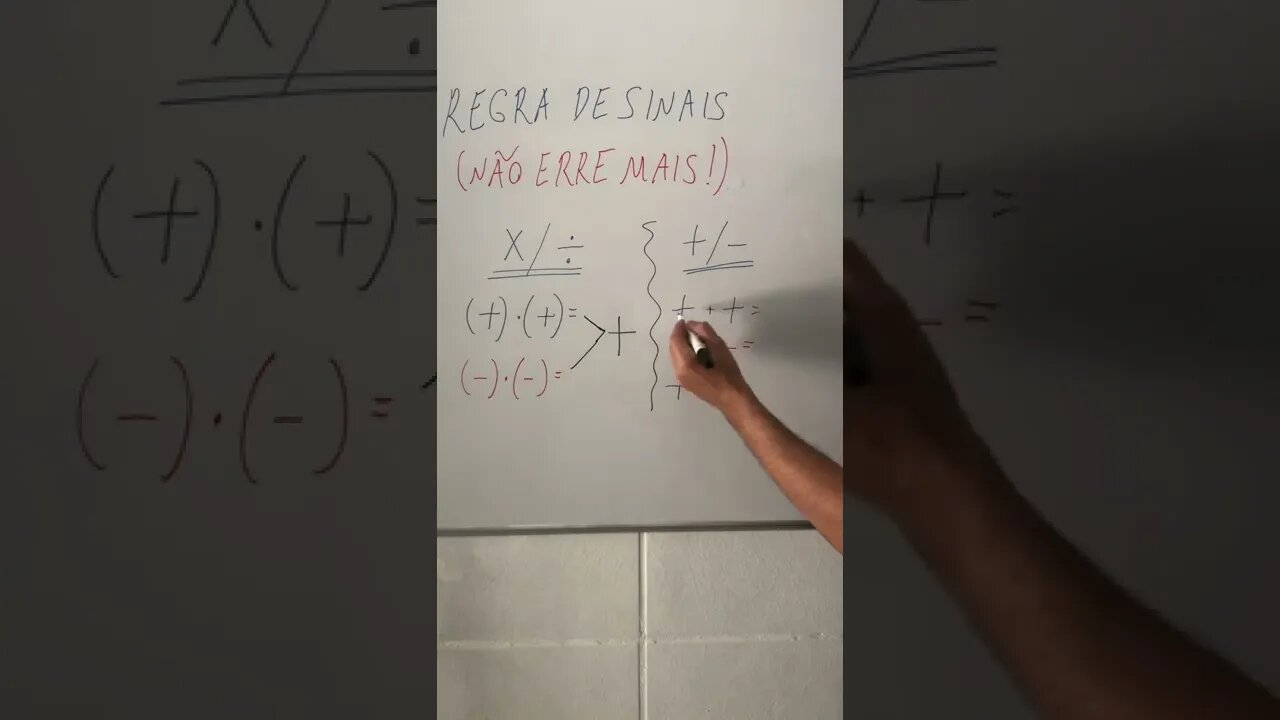 REGRA DE SINAIS
(NÃO ERRE MAIS!)
X/÷
(+)·(+)=
(-)·(-)=
+
+/-
+ + + =
- =
+